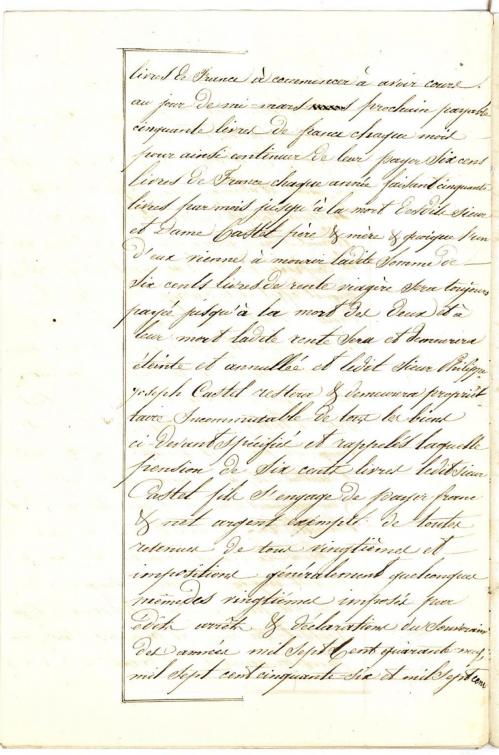 livres de France à commencer à avoir cours
au jour de mi-mars prochain payable
cinquante livres de france chaque mois
pour ainsi continuer de leur payer Six cens
livres de France chaque année faisant cinquante
livres par mois jusqu'à la mort desdits Sieur
et Dame Castel père & mère & quoique l'un
d'eux vienne à mourir ladite Somme de
Six cents livres de rente viagère Sera toujours
payée jusqu'à la mort des deux et à
leur mort ladite rente Sera et demeurera
éteinte et annullée et ledit Sieur Philippe
joseph Castel restera & demeurera propriét
taire Incommutable de tous les biens
ci-devant Spécifiés et rappelés laquelle
pension de Six cents livres ledit Sieur
Castel fils S'engage de payer franc
& net argent exempts de toutes
retenues de tous vingtièmes et
impositions généralement quelconques
mêmes des vingtièmes imposés par
édits arrêts & déclarations du Souverain
des années mil Sept Cent quarante neuf
mil Sept cent cinquante Six et mil Sept cent